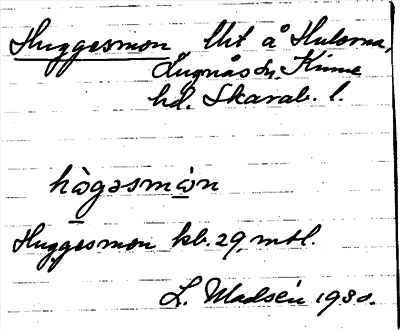 Huggesmon lht å Hulorna,
Lugnås sn, Kinne
hd. Skarab. l.
hògesmòn
Huggesmon kb. 29, mtl.
L. Madsén 1930.